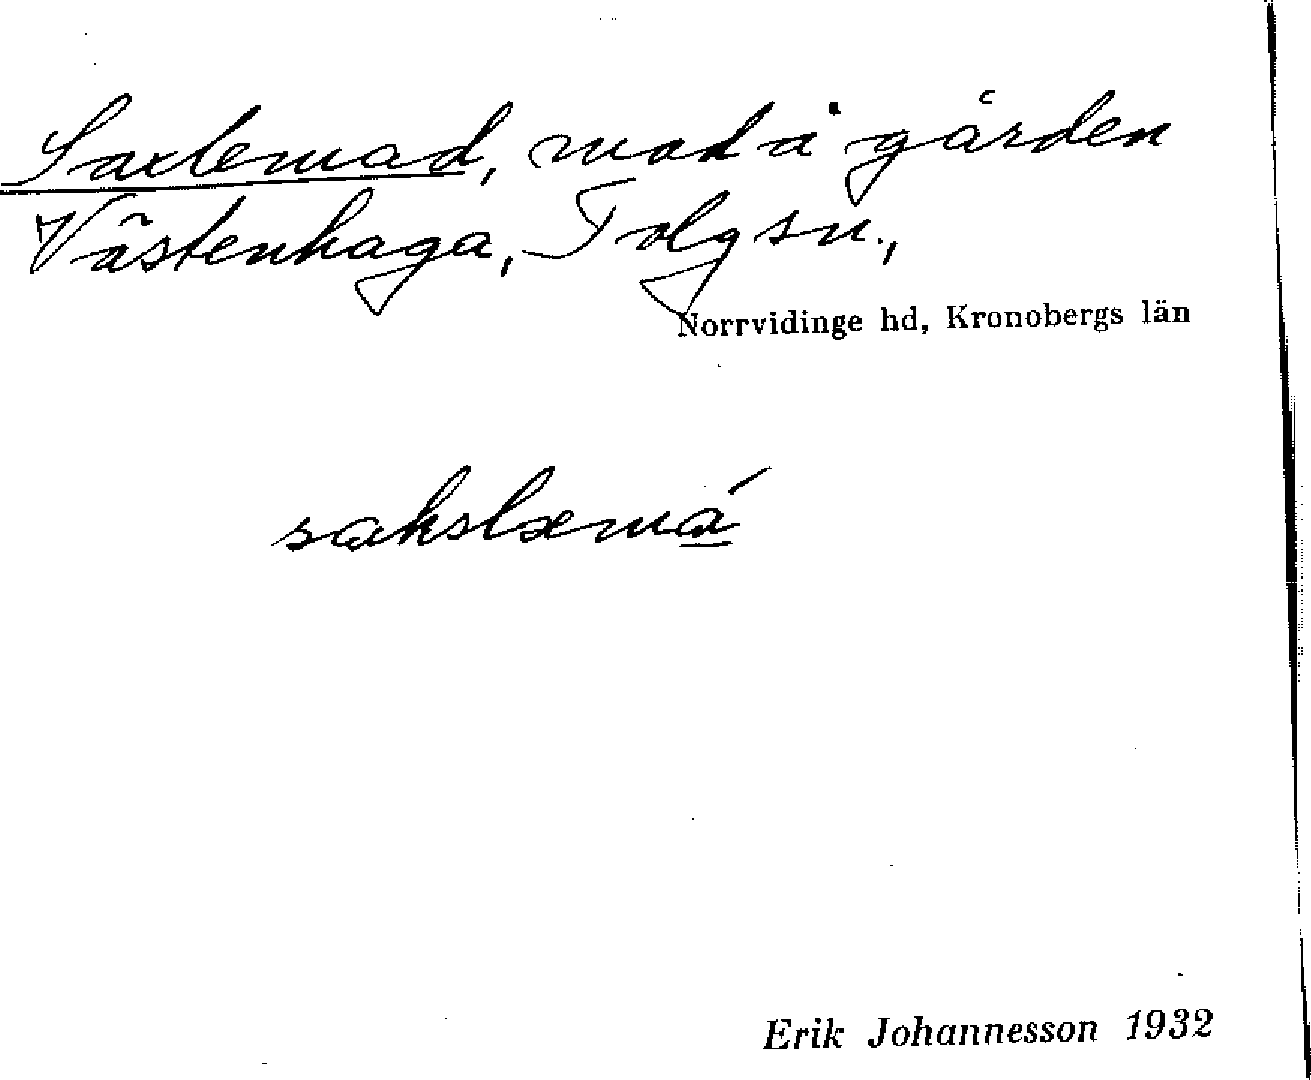 Saxlemad, mad å gården
Västenhaga, Tolgs sn.,
Norrvidinge hd, Kronobergs län
sakslæmá
Erik Johannesson 1932